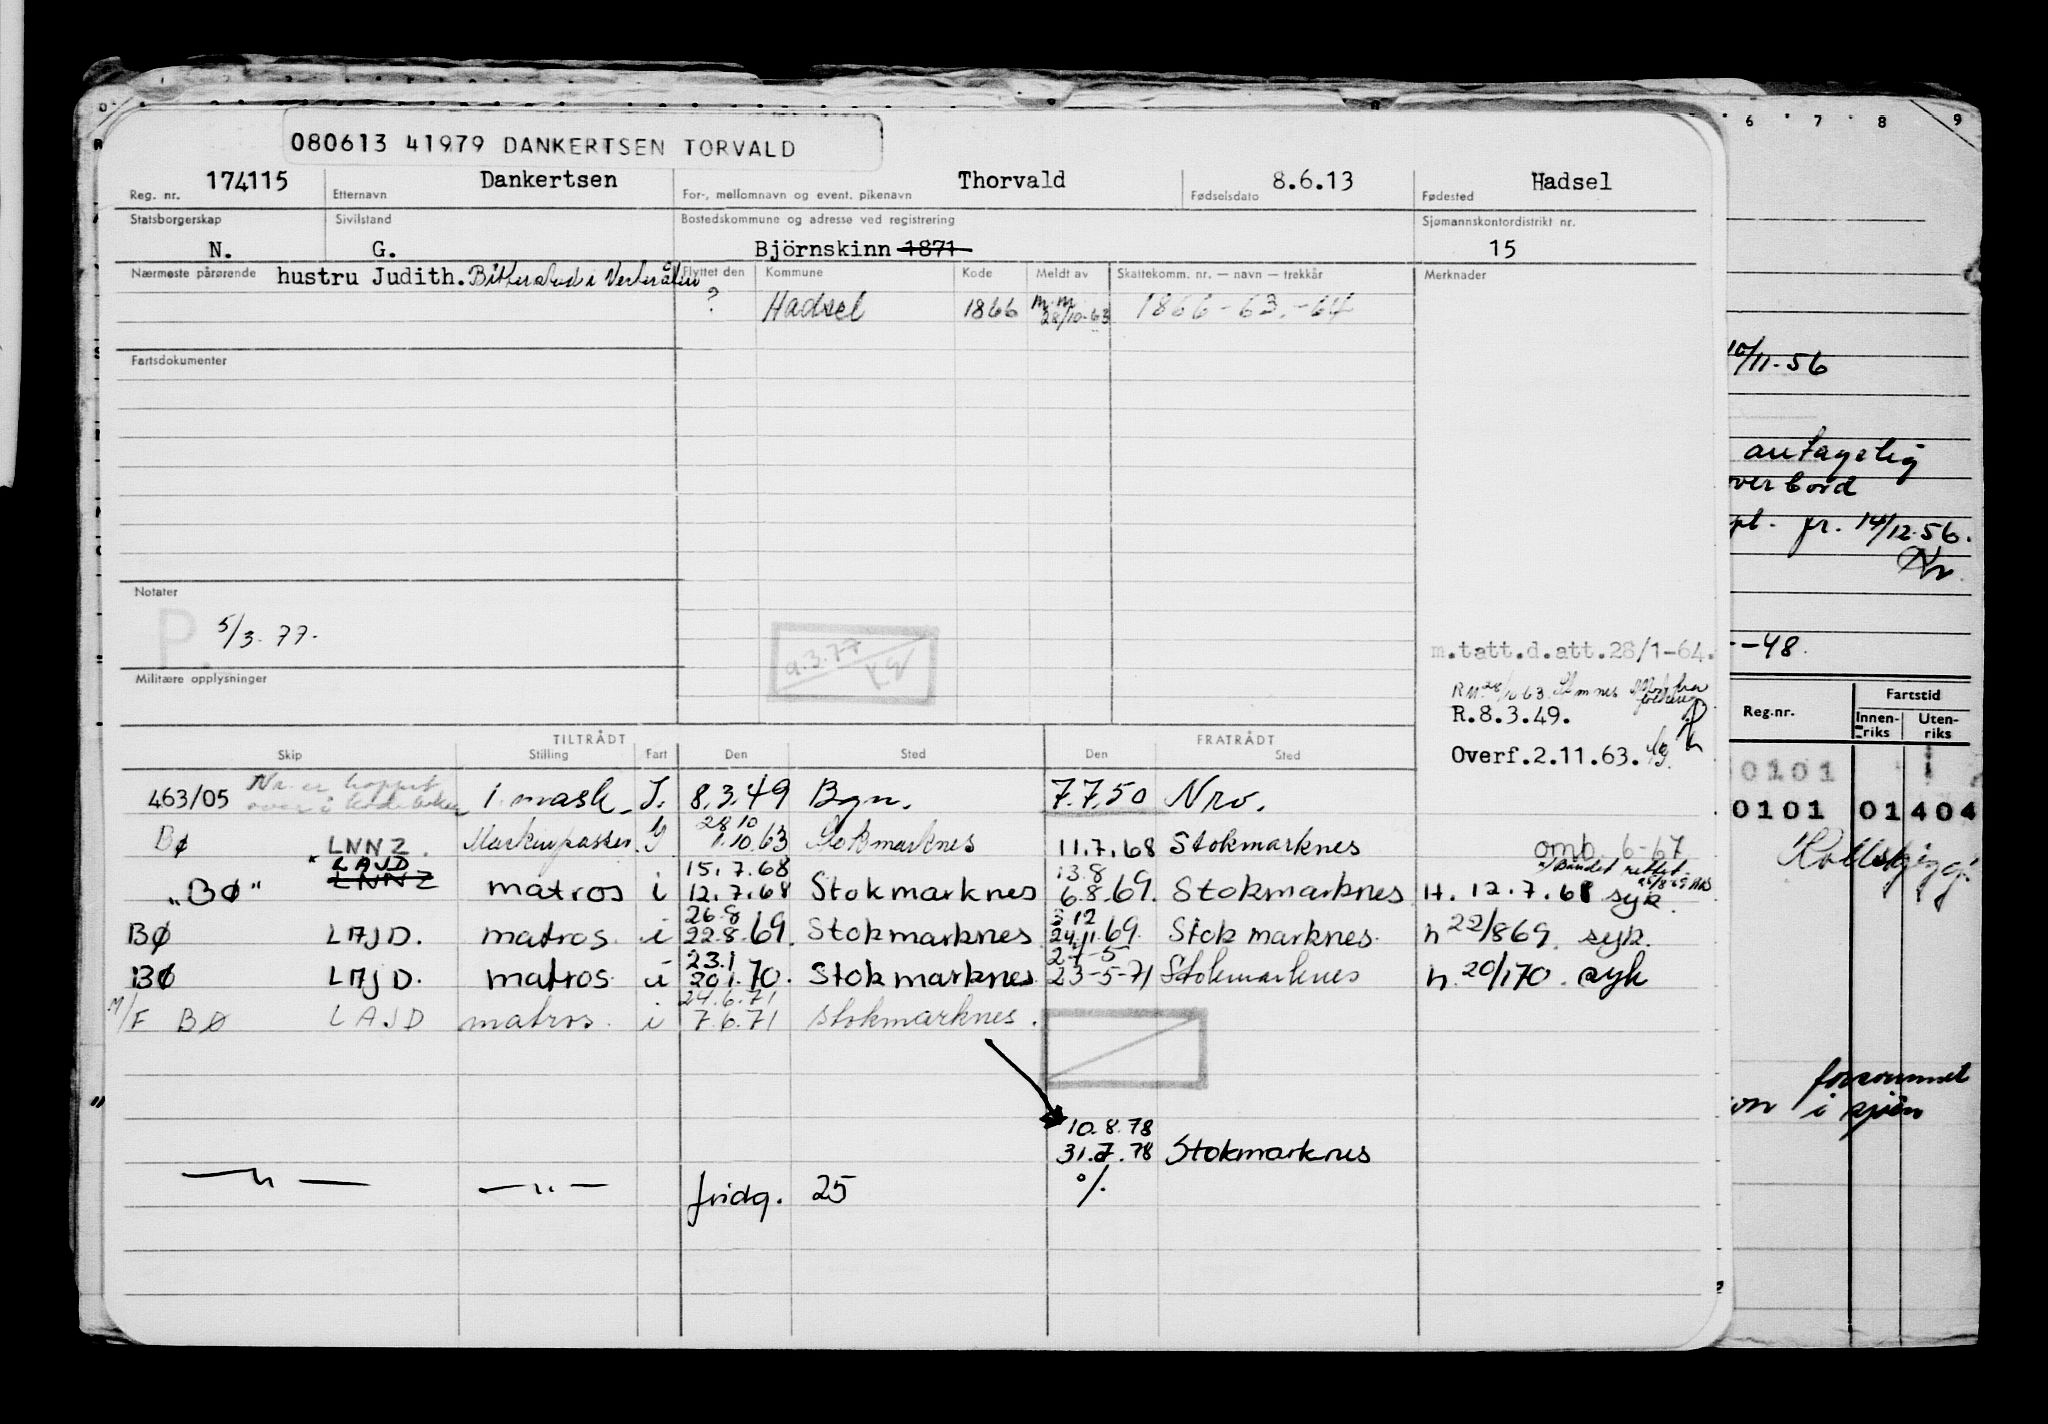 080613 41979 DANKERTSEN TORVALD
Reg. nr. 174115 Etternavn Dankertsen For-, mellomnavn og event. pikenavn Thorvald Fødselsdato 8.6.13 Fødested Hadsel
Statsborgerskap Sivilstand Bostedskommune og adresse ved registrering Sjømannskontordistrikt nr.
N. G. Björnskinn 1871 15
Nærmeste pårørende hustru Judith. Flyttet den Kommune Kode Meldt av Skattekomm. nr. — navn — trekkår Merknader
? Hadsel 1866 m.m 28/10-63 1866-63.-64
Fartsdokumenter
Notater
P. 5/3.77.
9.3.77
m.tatt.d.att.28/1-64.
Militære opplysninger
R.8.3.49.
TILTRÅDT FRATRÅDT
Overf.2.11.63.
Skip Stilling Fart Den Sted Den Sted
463/05 Nr. er hoppet over i 1 mask. I. 8.3.49 Bgn. 7.7.50 Nrv.
28 10
Bø LNNZ. 1.10.63 Stokmarknes 11.7.68 Stokmarknes omb. 6-67
LAJD 15.7.68 13.8
"BØ" LNNZ matros i 12.7.68 Stokmarknes 6.8.69. Stokmarknes H. 12.7.68 syk.
26.8 3.12
BØ LAJD. matros. i 22.8.69. Stokmarknes 24.11.69. Stokmarknes. h 22/869. syk.
23.1 27-5
BØ LAJD. matros i 20.1.70. Stokmarknes 23-5-71 Stokmarknes h. 20/170. syk
24.6.71
M/F BØ LAJD matros. i 7.6.71 Stokmarknes.
10.8.78
31.7.78 Stokmarknes
—"— —"— fridg. 25 %
6 7 8 9
10/11-56
antagelig
over bord
pl. fr. 14/12.56.
--48.
Reg.nr. Fartstid
Innen-riks Uten-riks
0101
0101 01 404
forsvunnet
i sjøen